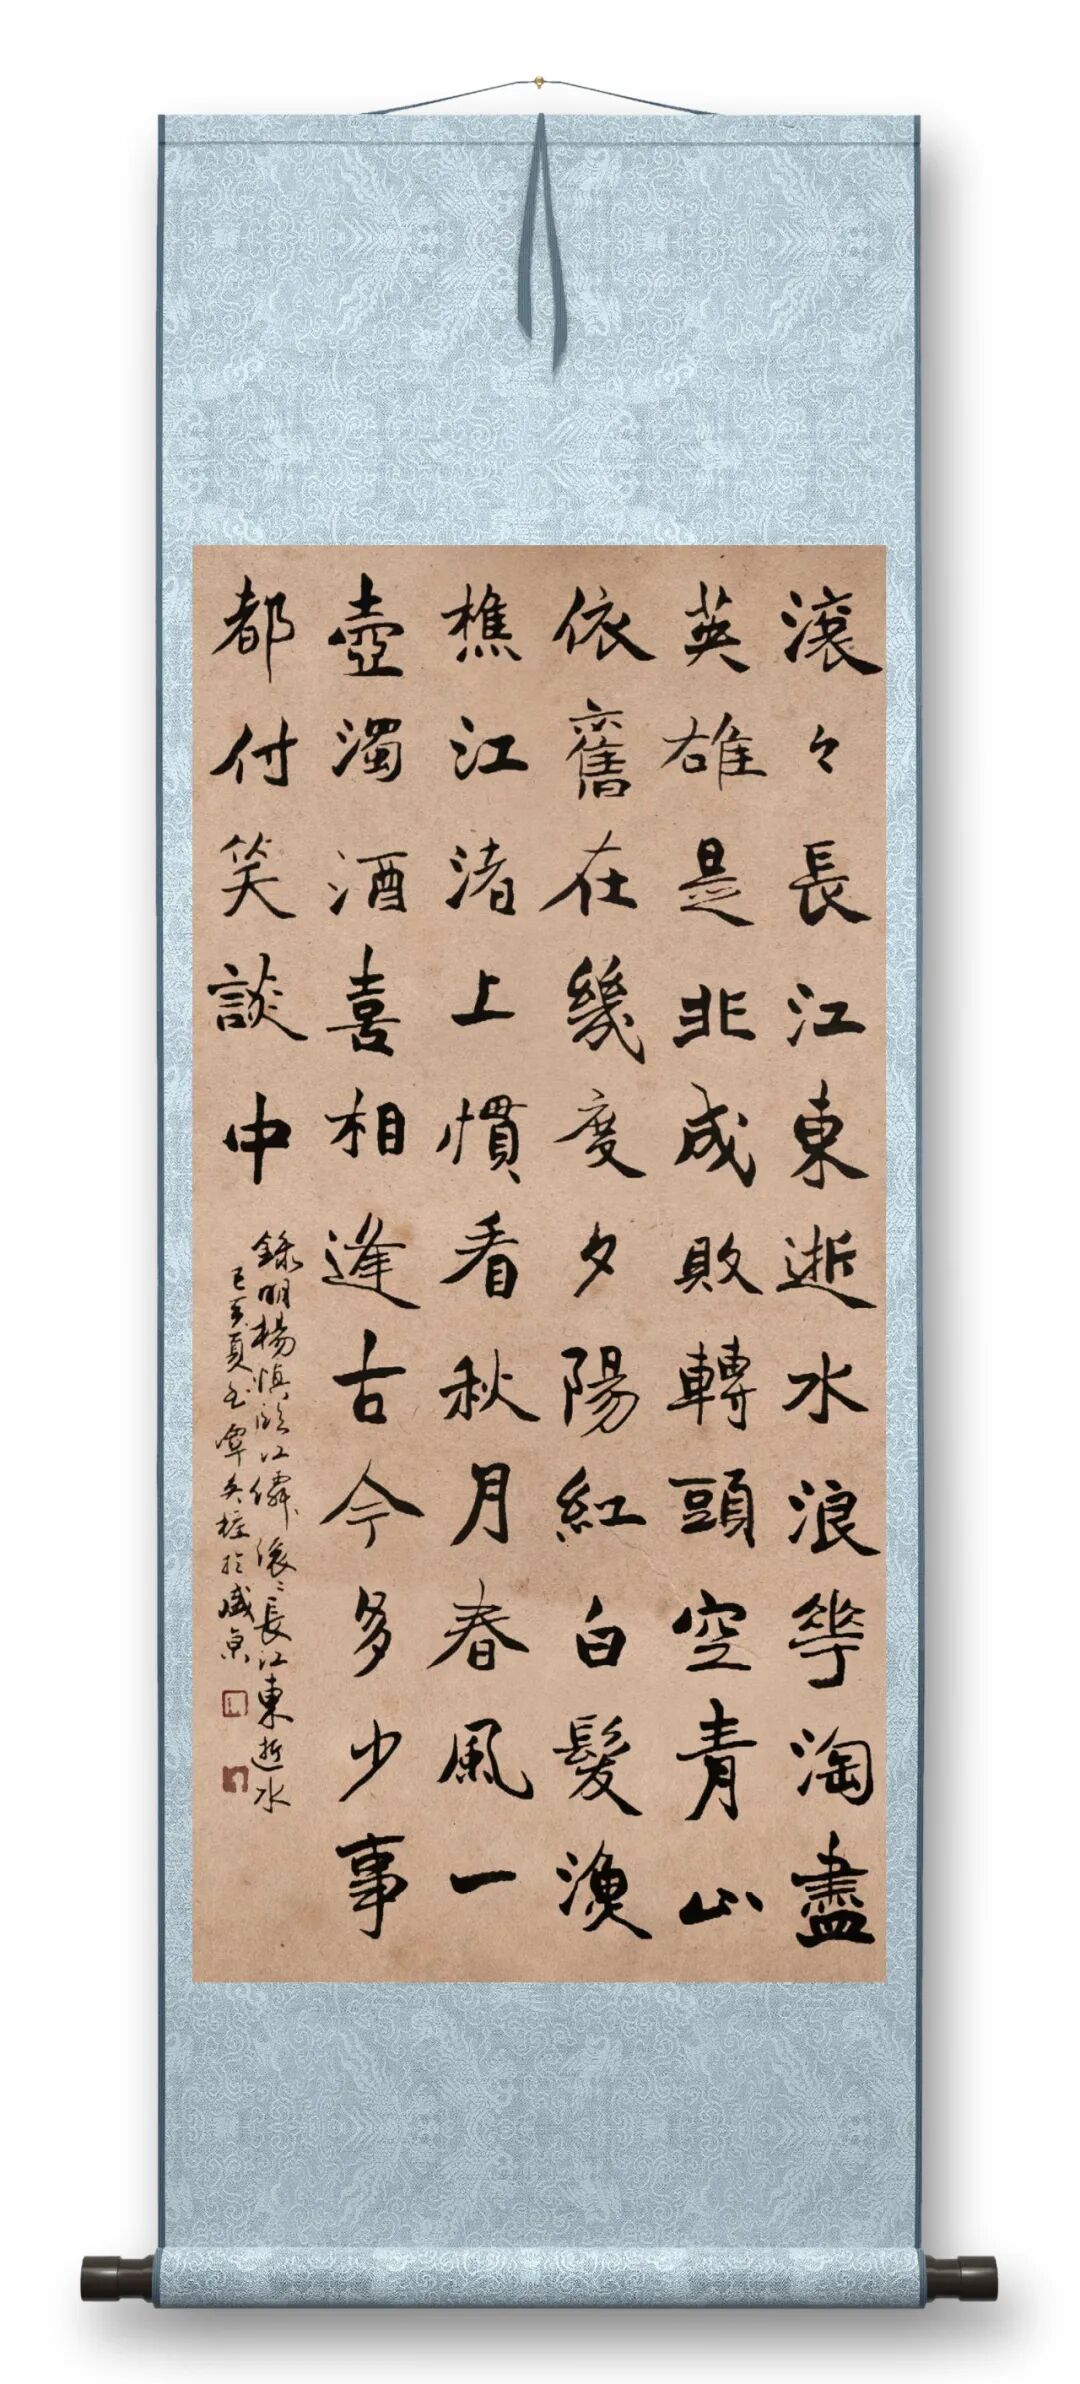 滚々長江東逝水浪花淘盡
英雄是非成敗轉頭空青山
依舊在幾度夕陽紅白髮漁
樵江渚上慣看秋月春風一
壺濁酒喜相逢古今多少事
都付笑談中
錄明楊慎臨江僊滚〻長江東逝水
己亥夏書
於盛京